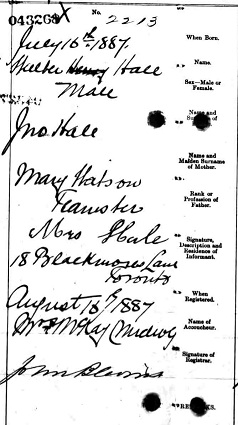 043268 X No. 2213
July 16th 1887. When Born.
Walter Henry Hall Name.
Male Sex—Male or Female.
Jno. Hall Name and
Mary Watson Name and Maiden Surname of Mother.
Teamster Rank or Profession of Father.
Mrs Hale Signature, Description and Residence of Informant.
18 Blackmores Lane
Toronto
August 18th/1887 When Registered.
Mrs McKay Midwife Name of Accoucheur.
John Blevins Signature of Registrar.
REMARKS.